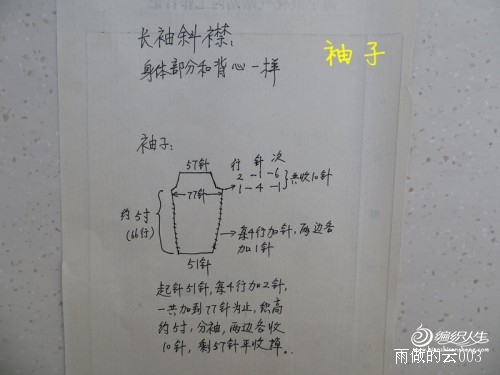 长袖斜襟:
身体部分和背心一样
袖子
袖子:
57针
行 针 次
2-1-6
1-4-1
共收10针
77针
约5寸
(66行)
每4行加针,两边各
加1针
51针
起针51针,每4行加2针,
一共加到77针为止,织高
约5寸,分袖,两边各收
10针,剩57针平收掉。
编织人生
雨做的云003